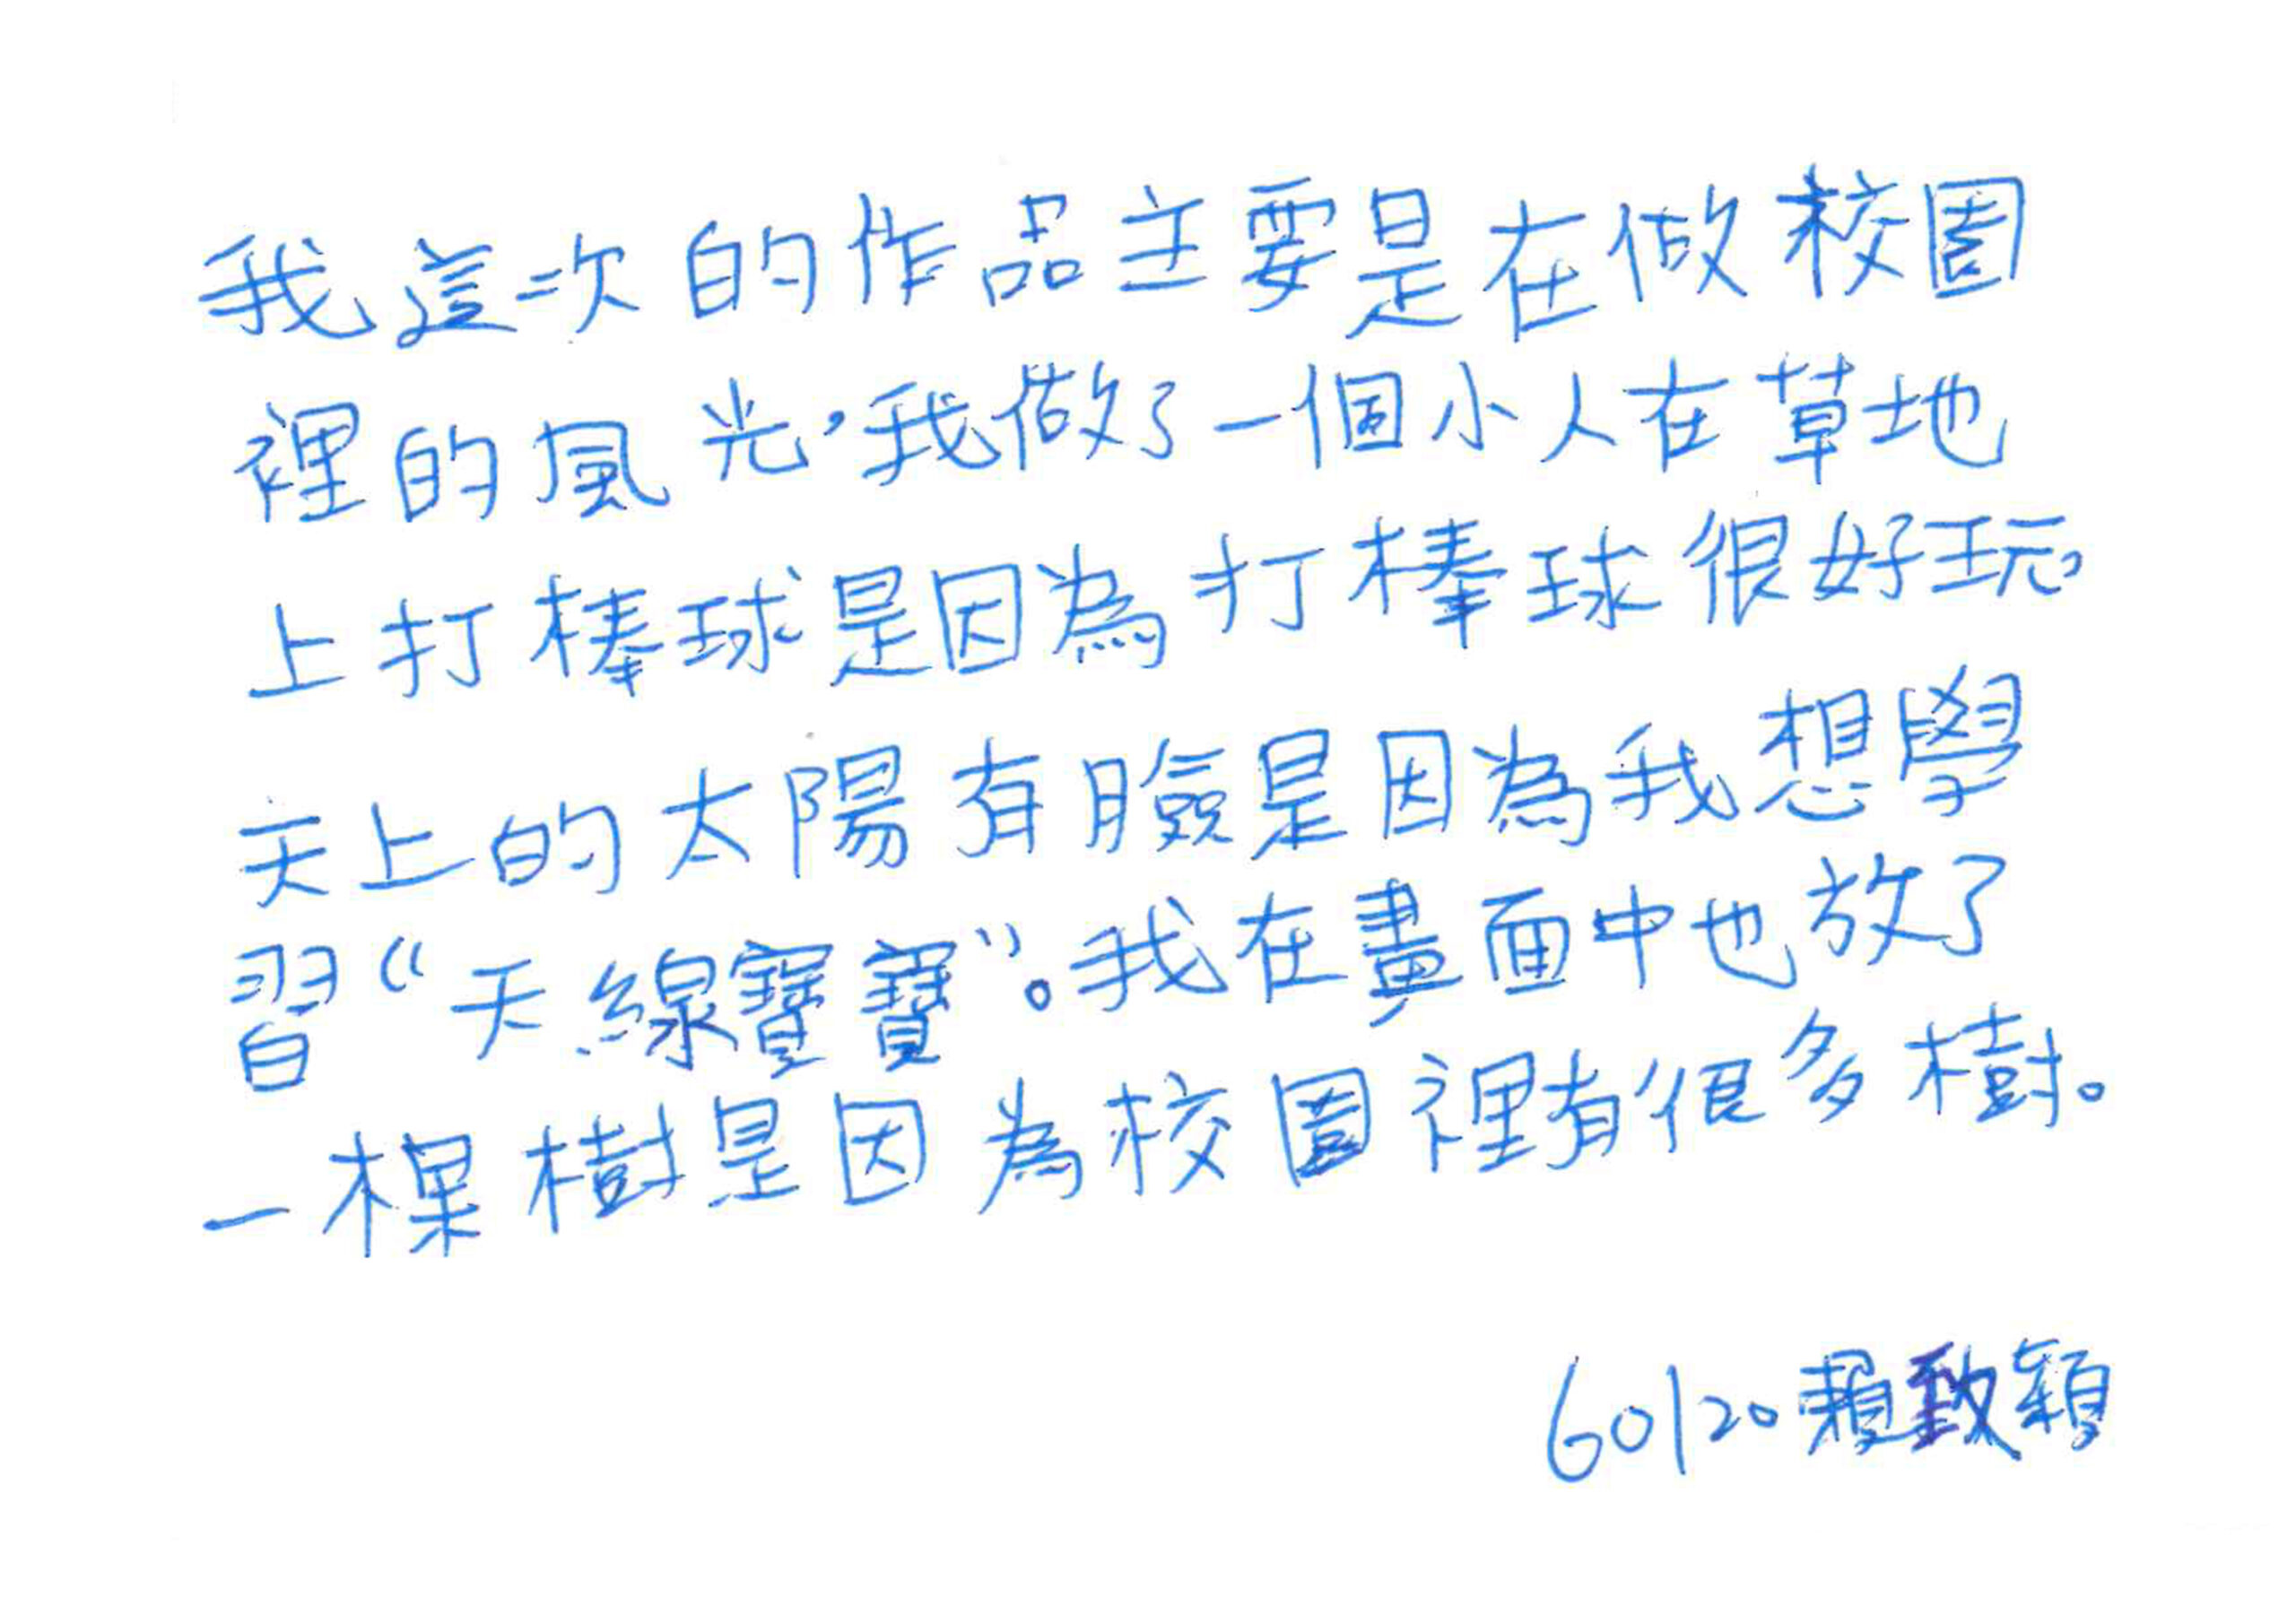 我這次的作品主要是在做校園
裡的風光，我做了一個小人在草地
上打棒球是因為打棒球很好玩，
天上的太陽有臉是因為我想學
習“天線寶寶”。我在畫面中也放了
一棵樹是因為校園裡有很多樹。
60120賴致穎